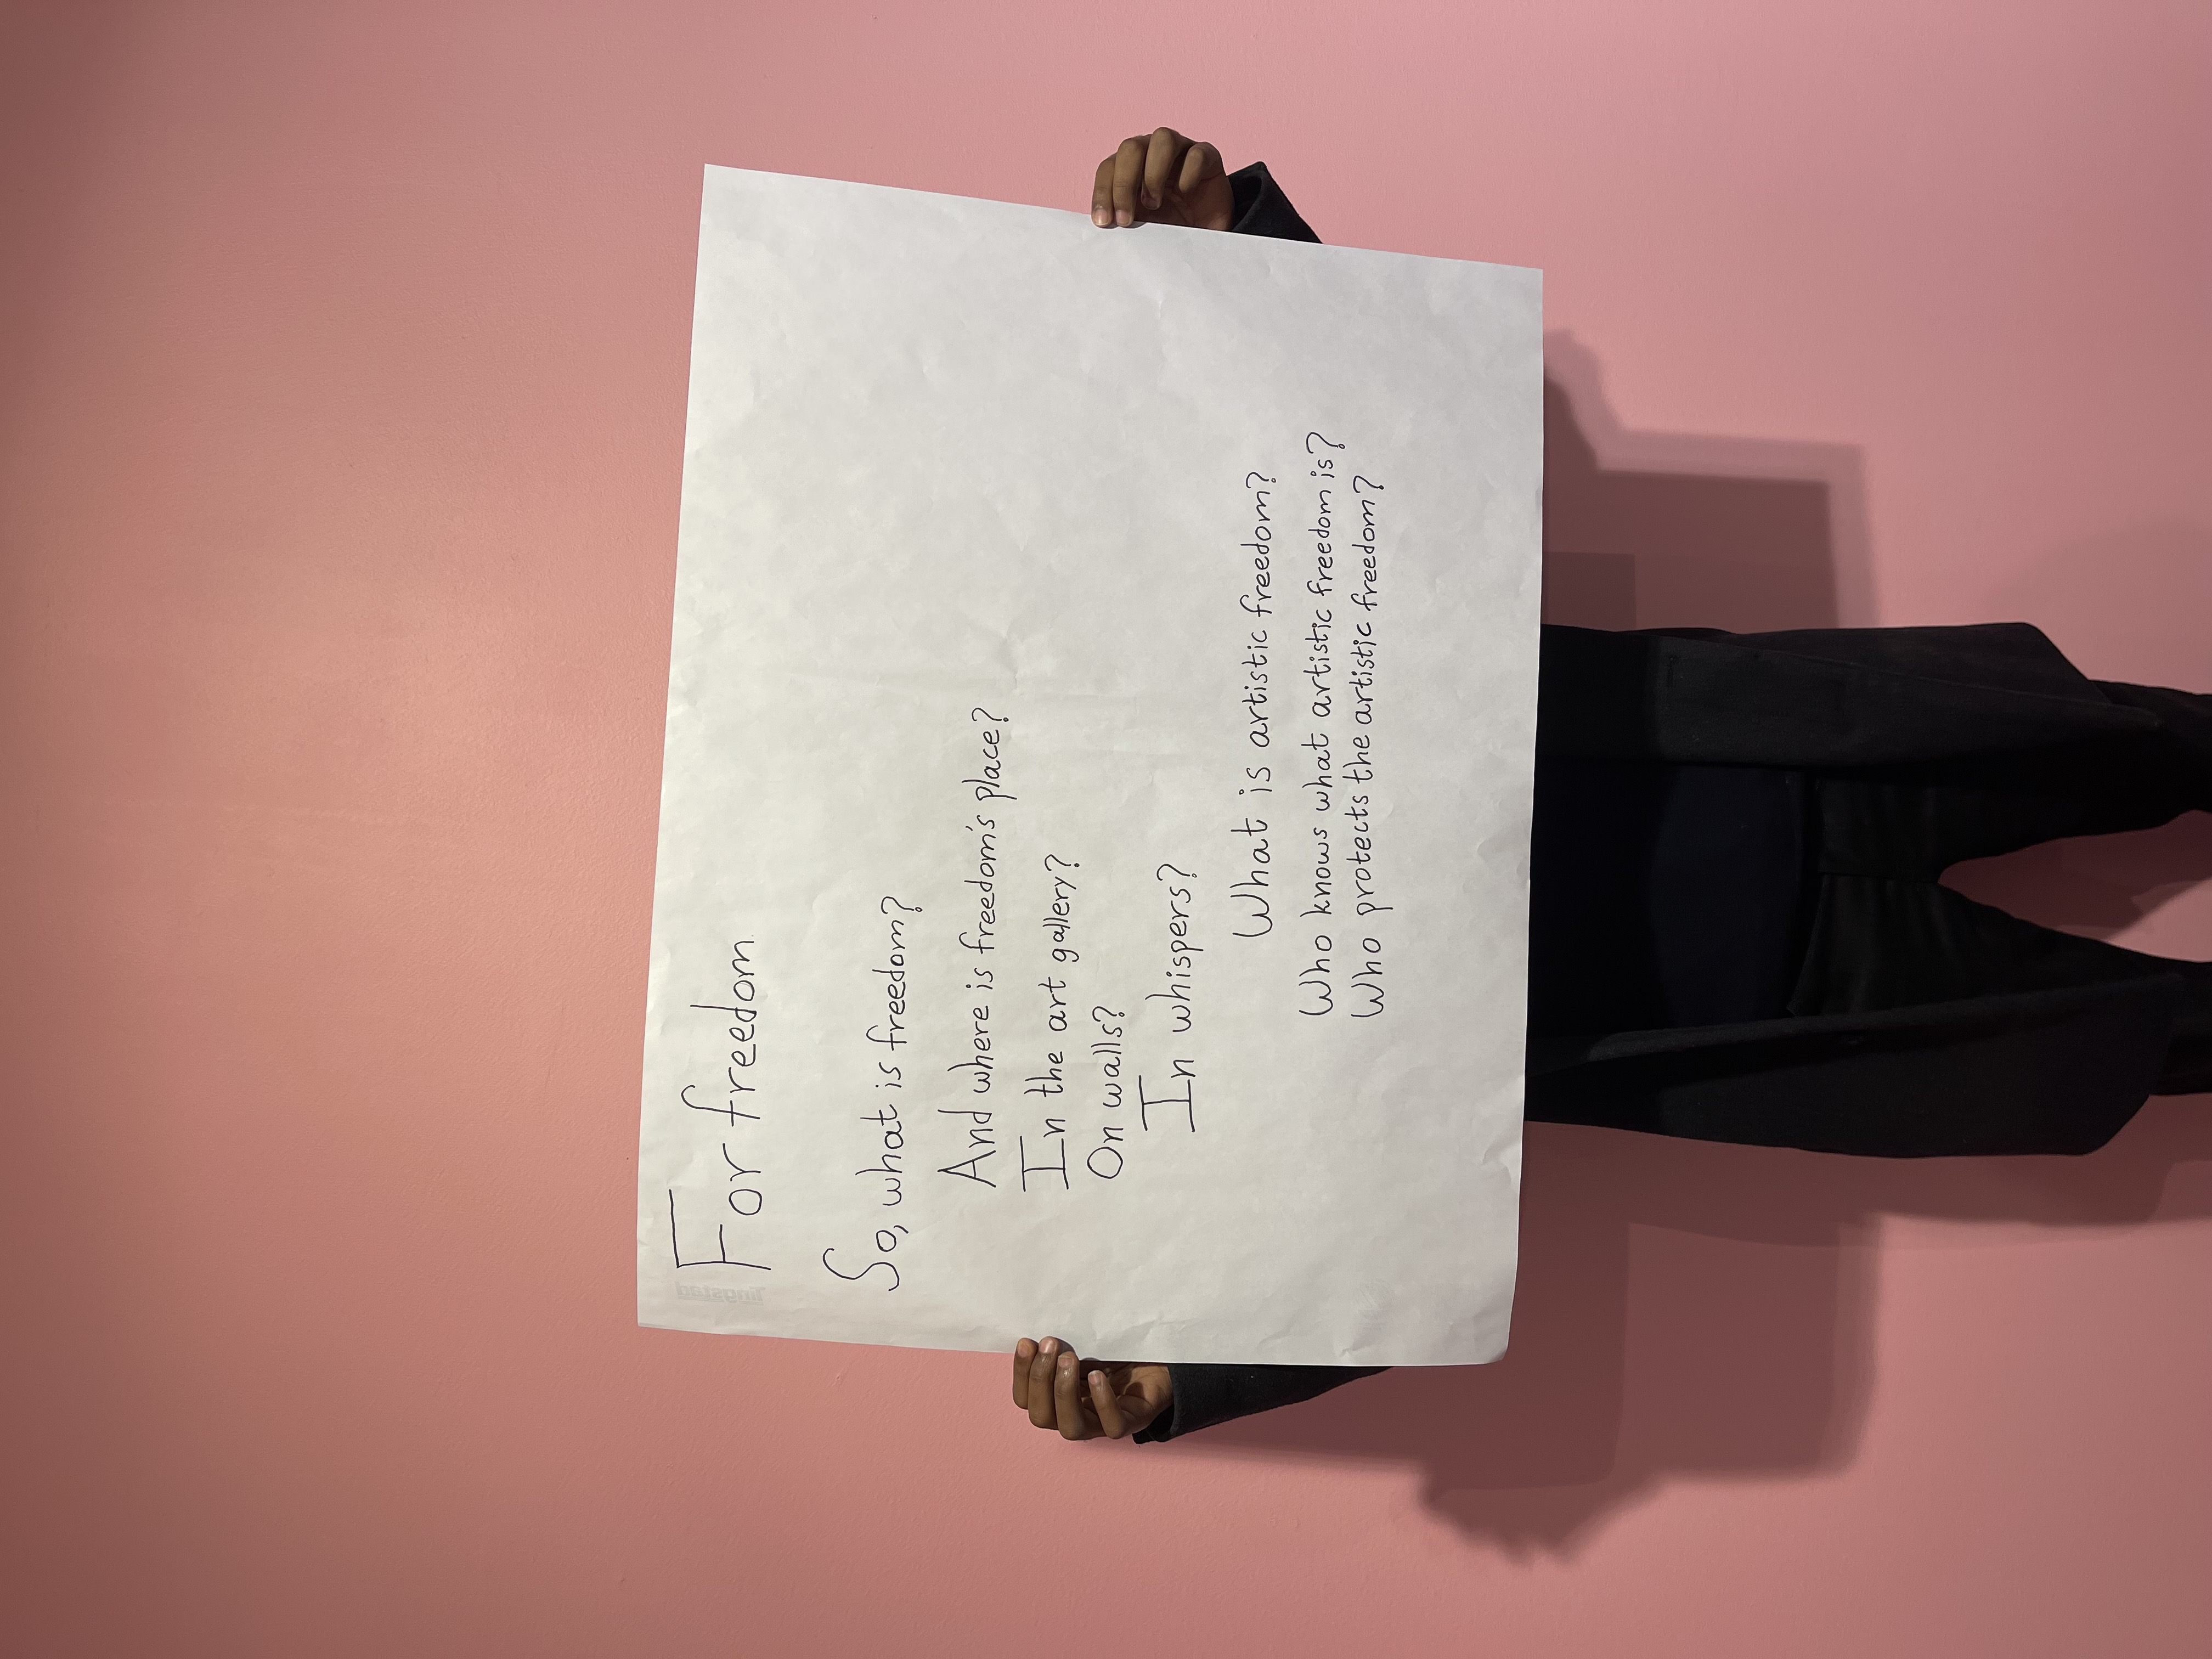 For freedom
So, what is freedom?
And where is freedom's place?
In the art gallery?
On walls?
In whispers?
What is artistic freedom?
Who knows what artistic freedom is?
Who protects the artistic freedom?
Tingstad